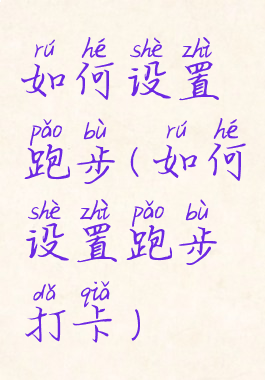 rú hé shè zhì
如何设置
pǎo bù rú hé
跑步(如何
shè zhì pǎo bù
设置跑步
dǎ qiǎ
打卡)